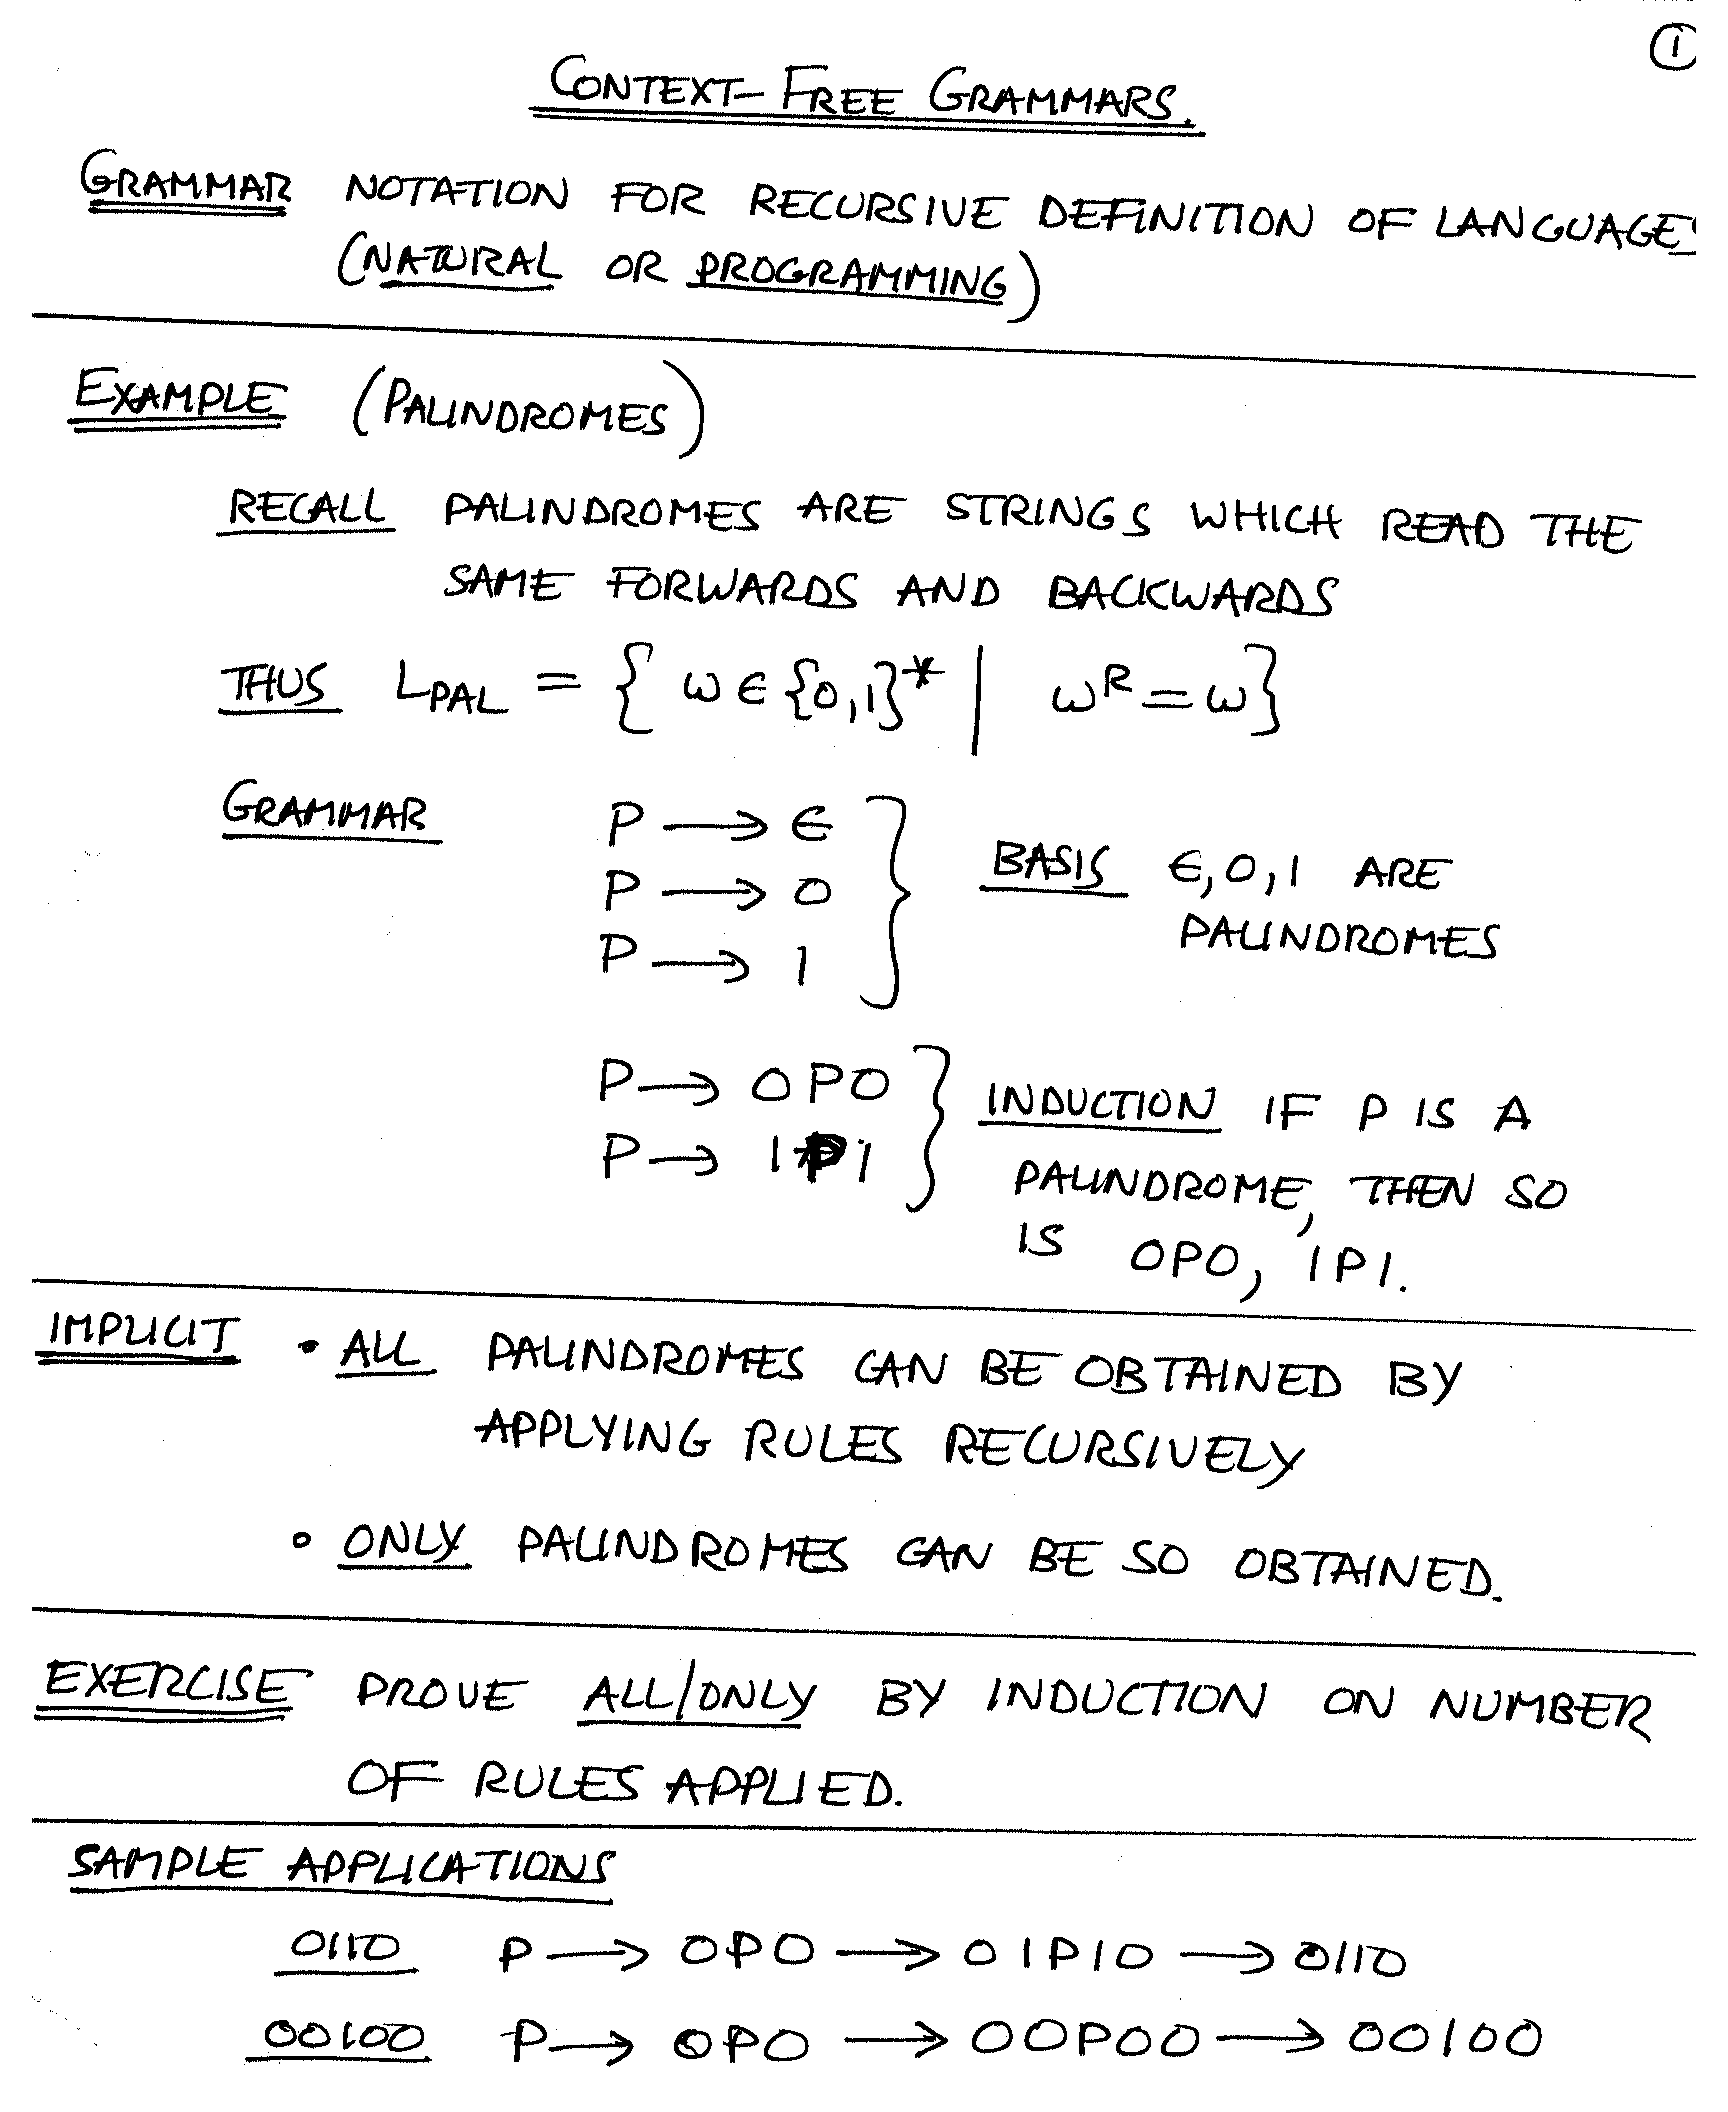 ①
CONTEXT-FREE GRAMMARS.
GRAMMAR NOTATION FOR RECURSIVE DEFINITION OF LANGUAGES
(NATURAL OR PROGRAMMING)
EXAMPLE (PALINDROMES)
RECALL PALINDROMES ARE STRINGS WHICH READ THE
SAME FORWARDS AND BACKWARDS
THUS L_PAL = { w ∈ {0,1}* | w^R = w}
GRAMMAR P → ϵ
P → 0
P → 1
BASIS ϵ, 0, 1 ARE
PALINDROMES
P → 0P0
P → 1P1
INDUCTION IF P IS A
PALINDROME, THEN SO
IS 0P0, 1P1.
IMPLICIT • ALL PALINDROMES CAN BE OBTAINED BY
APPLYING RULES RECURSIVELY
• ONLY PALINDROMES CAN BE SO OBTAINED.
EXERCISE PROVE ALL/ONLY BY INDUCTION ON NUMBER
OF RULES APPLIED.
SAMPLE APPLICATIONS
0110 P → 0P0 → 01P10 → 0110
00100 P → 0P0 → 00P00 → 00100